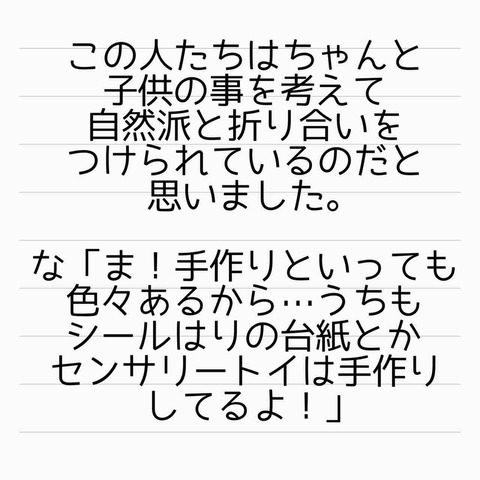 この人たちはちゃんと
子供の事を考えて
自然派と折り合いを
つけられているのだと
思いました。
な「ま！手作りといっても
色々あるから…うちも
シールはりの台紙とか
センサリートイは手作り
してるよ！」